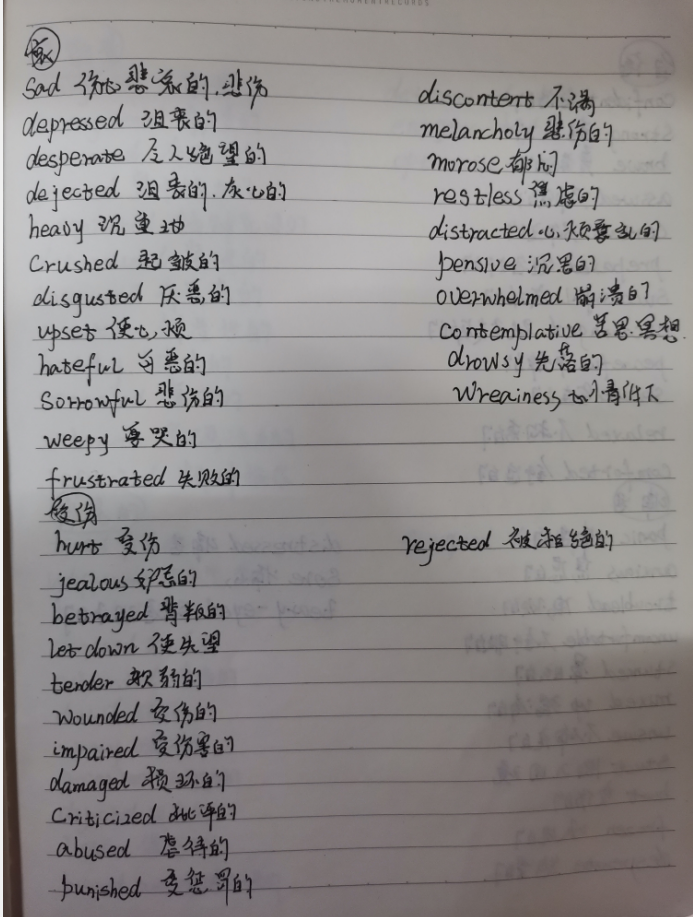 sad 伤心 悲哀的. 悲伤
depressed 沮丧的
desperate 令人绝望的
dejected 沮丧的. 灰心的
heavy 沉重
Crushed 起皱的
disgusted 厌恶的
upset 使心烦
hateful 可恶的
Sorrowful 悲伤的
weepy 要哭的
frustrated 失败的
discontent 不满
melancholy 悲伤的
morose 郁闷
restless 焦虑的
distracted 心烦意乱的
pensive 沉思的
overwhelmed 崩溃的
contemplative 苦思冥想
drowsy 失落的
Wreainess
受伤
hurt 受伤
jealous 妒忌的
betrayed 背叛的
let down 使失望
tender 软弱的
Wounded 受伤的
impaired 受伤害的
damaged 损坏的
Criticized 批评的
abused 虐待的
punished 受惩罚的
rejected 被拒绝的